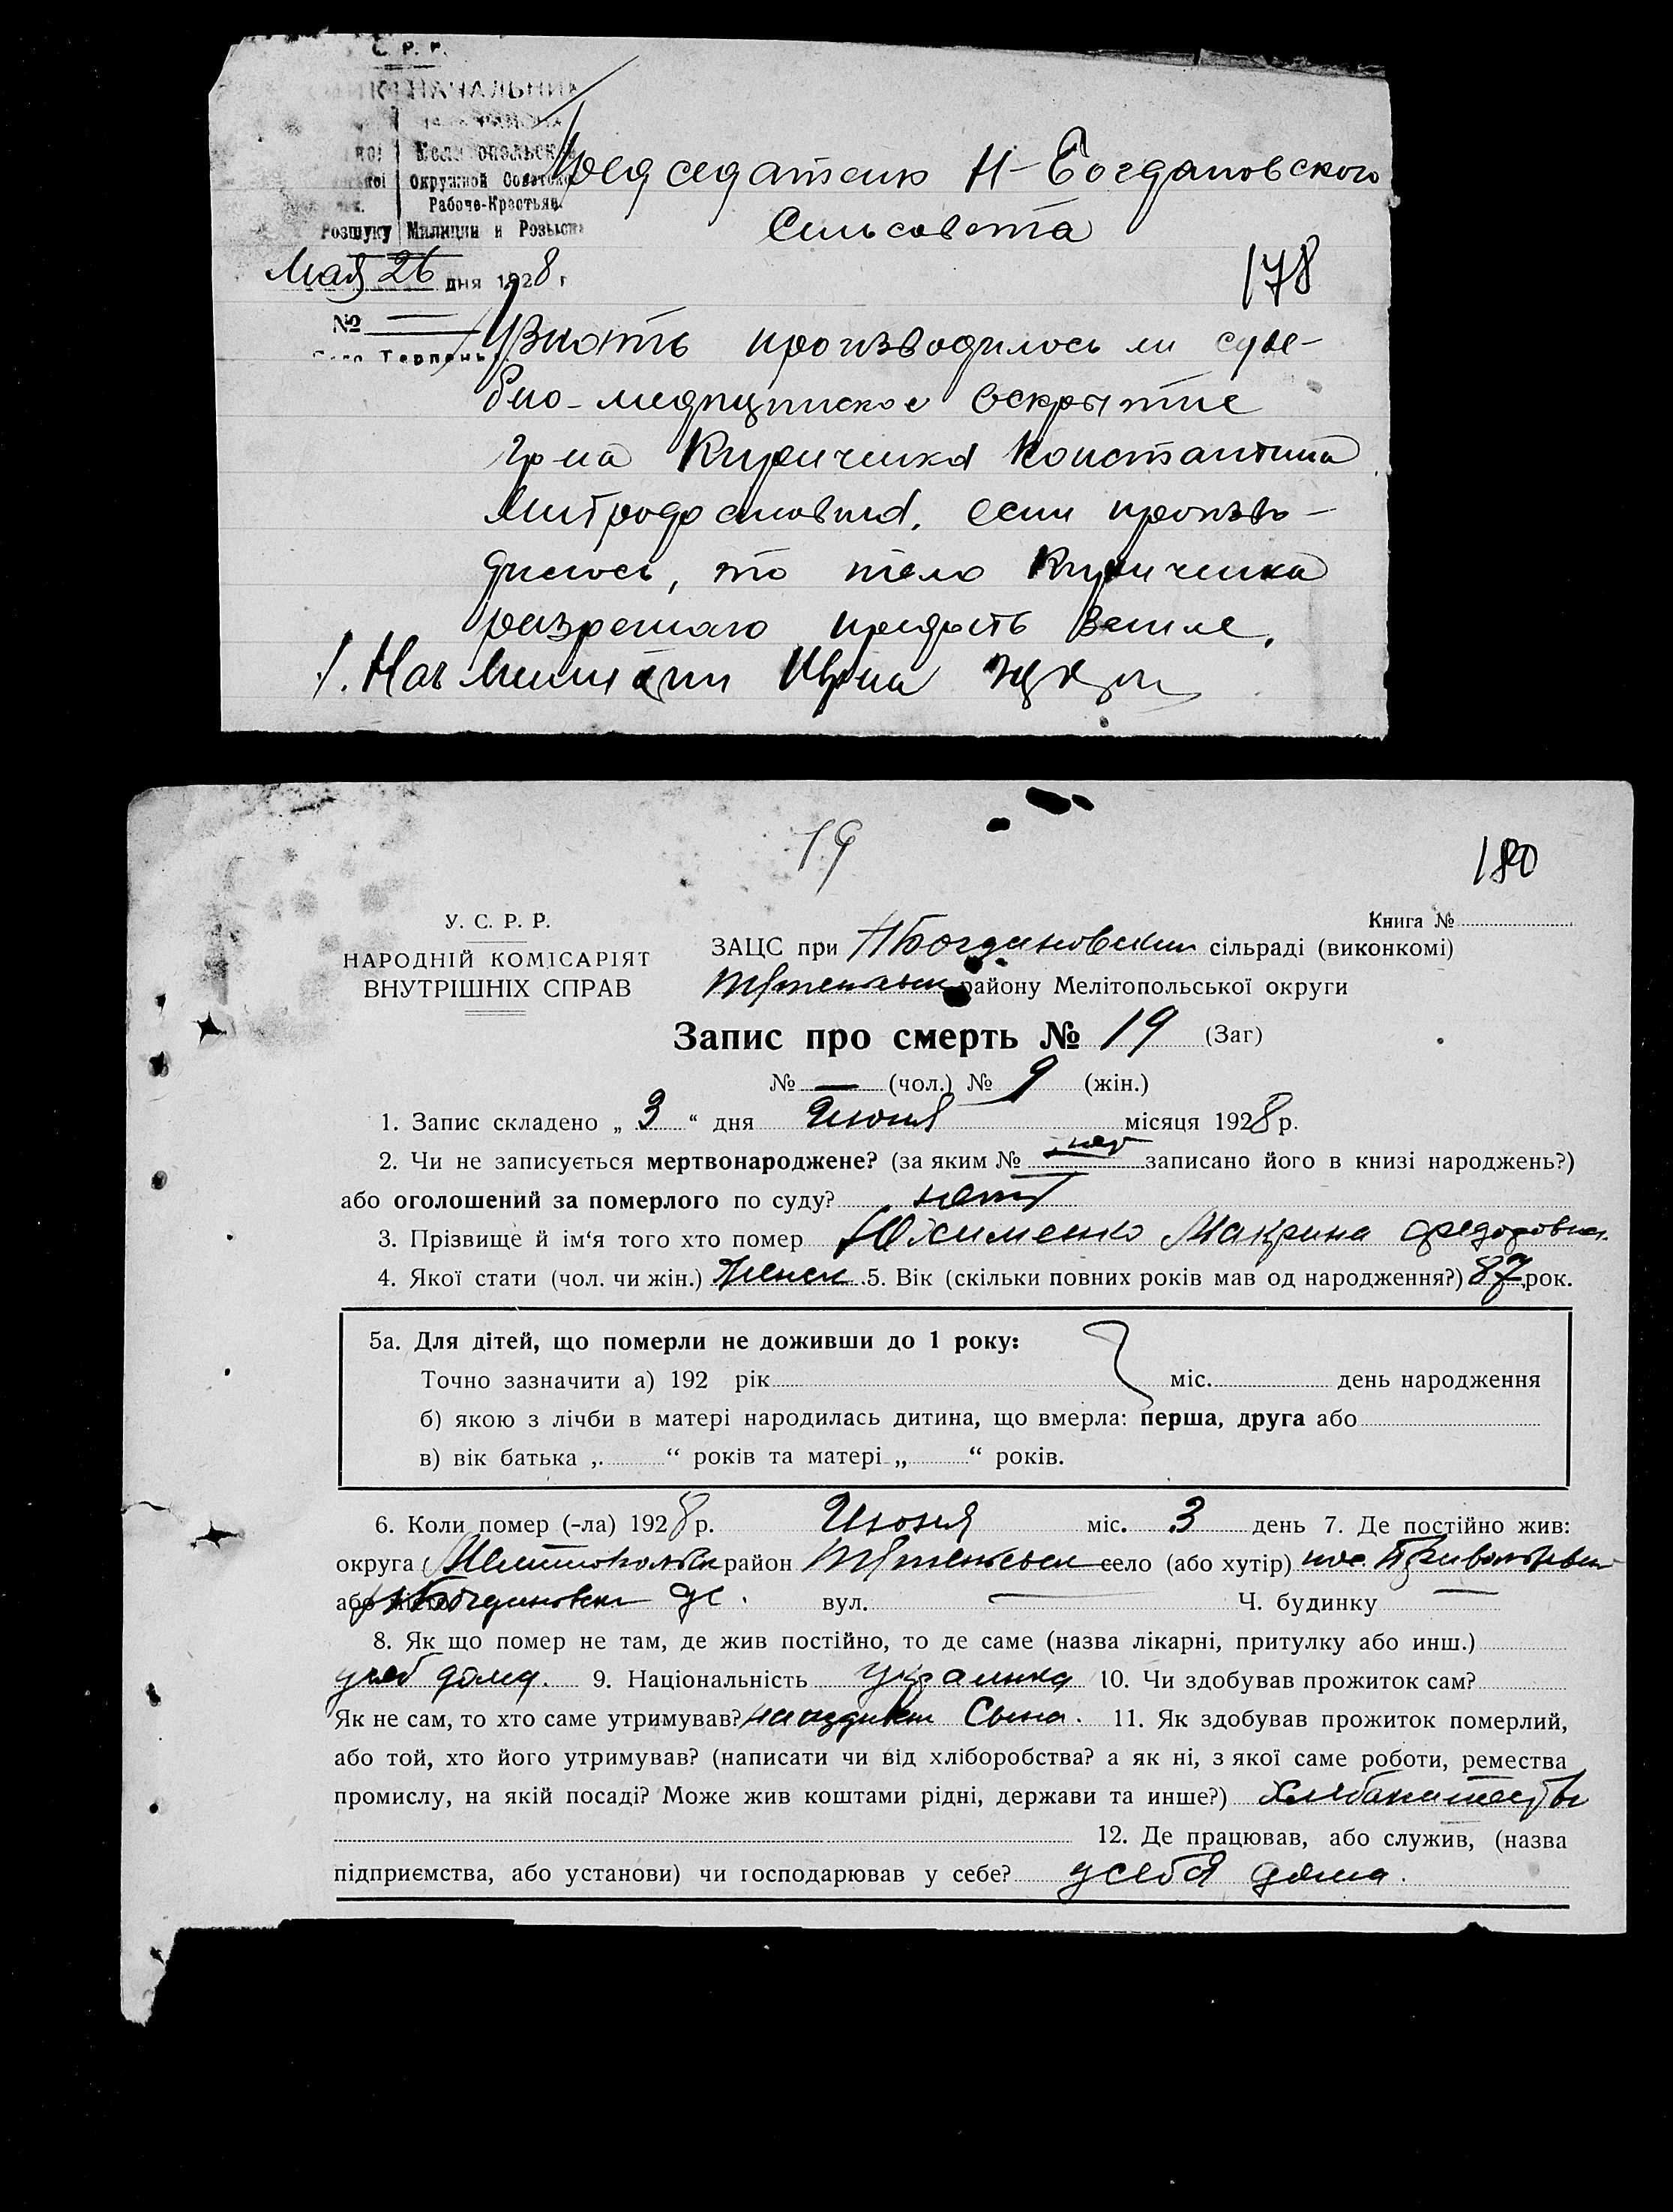 С. Р. Р.
НАЧАЛЬНИК
Окружной Советско
Рабоче-Крестьян.
Розшуку Милиции и Розыска
Председателю Н-Богдановского
Сельсовета
Мая 26 дня 1928 г
178
№ —
Село Терпенье
Узнать производилось ли суде-
бно-медицинское вскрытие
гр-на Кириченка Константина
Митрофановича, если произво-
дилось, то тело Кириченка
разрешаю предать земле.
Нач Милиции
19
180
У. С. Р. Р.
НАРОДНІЙ КОМІСАРІЯТ
ВНУТРІШНІХ СПРАВ
Книга №
ЗАЦС при НБогдановским сільраді (виконкомі)
району Мелітопольської округи
Запис про смерть № 19 (Заг)
№ — (чол.) № 9 (жін.)
1. Запис складено „ 3 “ дня Июня місяця 1928 р.
2. Чи не записується мертвонароджене? (за яким № нет записано його в книзі народжень?)
або оголошений за померлого по суду? нет
3. Прізвище й ім‘я того хто помер Юхименко Макрина Федоровна
4. Якої стати (чол. чи жін.) Женск 5. Вік (скільки повних років мав од народження?) 87 рок.
5а. Для дітей, що померли не доживши до 1 року:
Точно зазначити а) 192 рік міс. день народження
б) якою з лічби в матері народилась дитина, що вмерла: перша, друга або
в) вік батька „ “ років та матері „ “ років.
6. Коли помер (-ла) 1928 р. Июня міс. 3 день 7. Де постійно жив:
округа Мелитопольск район село (або хутір) пос.
або місто вул. — Ч. будинку —
8. Як що помер не там, де жив постійно, то де саме (назва лікарні, притулку або инш.)
у себ дома. 9. Національність украинка 10. Чи здобував прожиток сам?
Як не сам, то хто саме утримував? Сына. 11. Як здобував прожиток померлий,
або той, хто його утримував? (написати чи від хліборобства? а як ні, з якої саме роботи, ремества
промислу, на якій посаді? Може жив коштами рідні, держави та инше?)
12. Де працював, або служив, (назва
підприємства, або установи) чи господарював у себе? у себя дома.